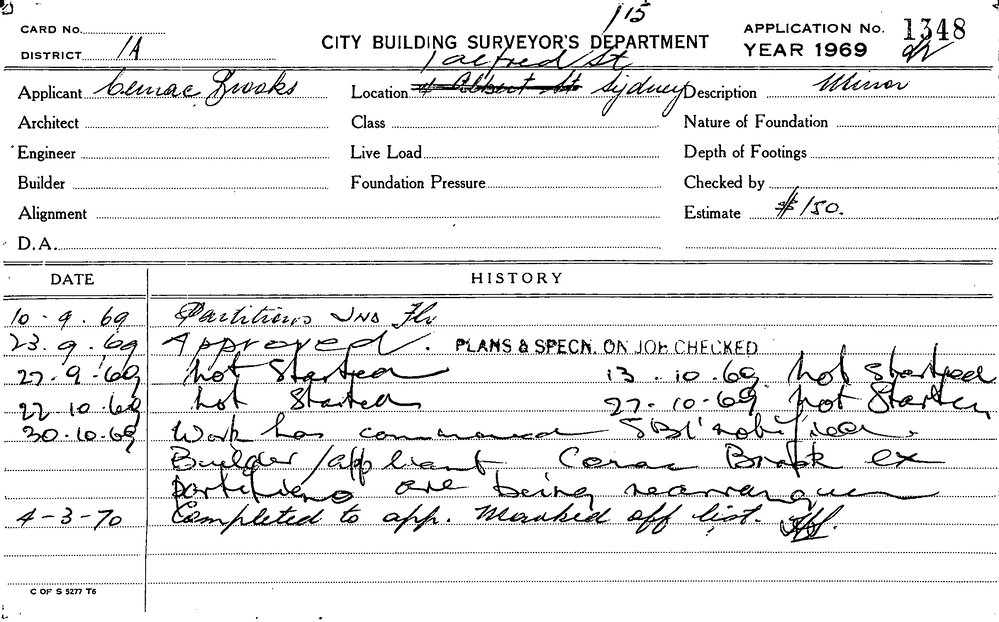 115
CARD No.
CITY BUILDING SURVEYOR'S DEPARTMENT
APPLICATION No. 1348
DISTRICT 1A
YEAR 1969
1 Alfred St
Applicant Cemac Brooks
Location 4 Albert St Sydney
Description Minor
Architect
Class
Nature of Foundation
Engineer
Live Load
Depth of Footings
Builder
Foundation Pressure
Checked by
Alignment
Estimate $150.
D.A.
DATE
HISTORY
10.9.69 Partitions 2nd Flr
23.9.69 Approved. PLANS & SPECN. ON JOB CHECKED
27.9.69 not Started 13.10.69 not started
22.10.69 not Started 27.10.69 not Started
30.10.69 Work has commenced
Builder/applicant Brook ex
partitions are being rearranged
4-3-70 Completed to app. Marked off list.
C OF S 5277 T6